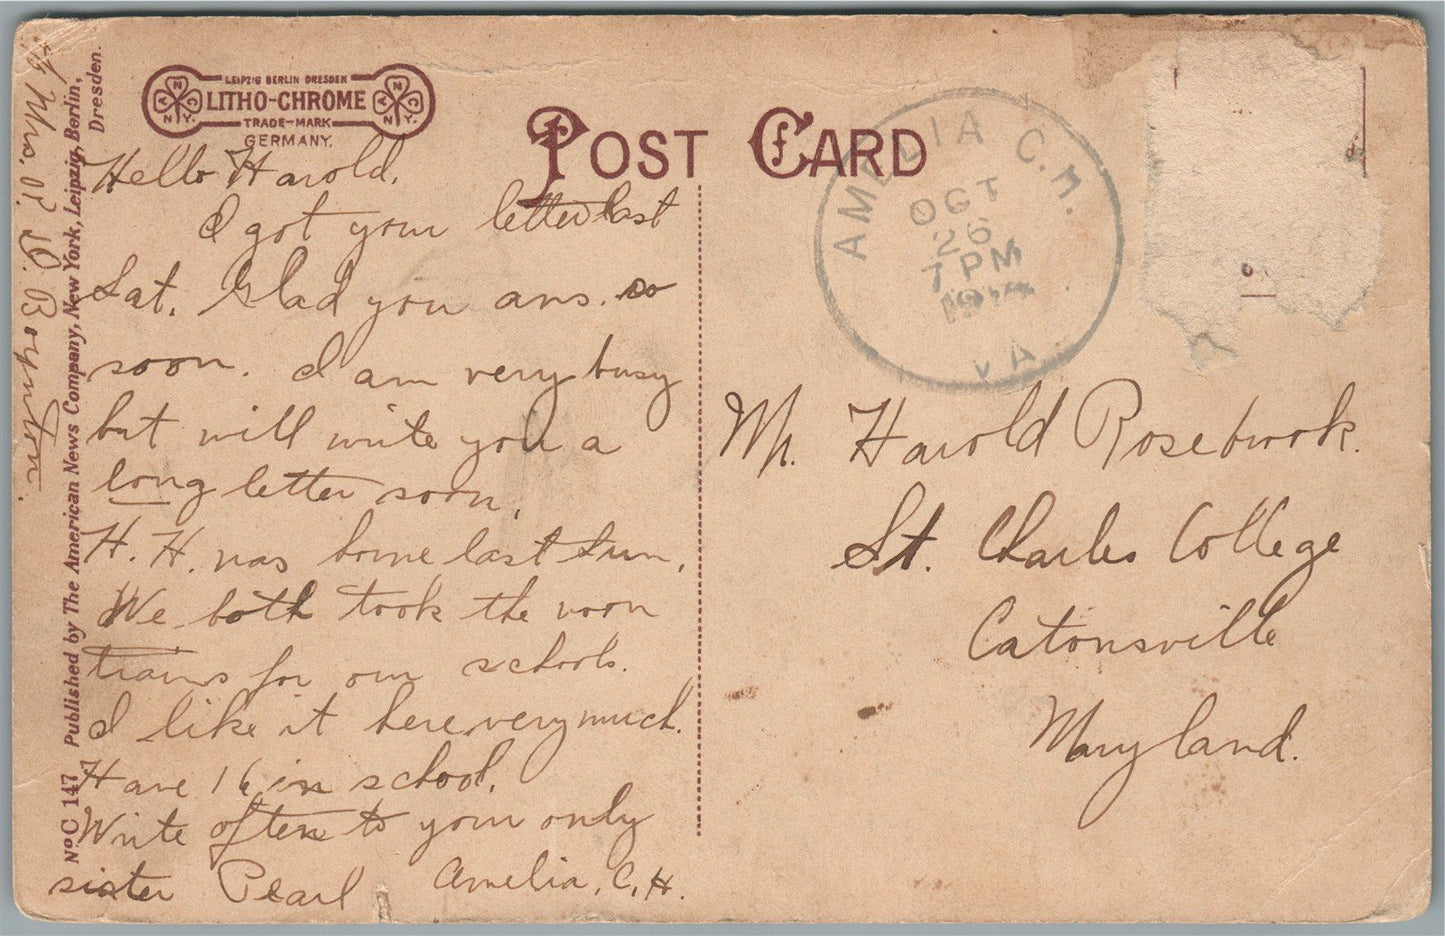 LEIPZIG BERLIN DRESDEN
LITHO-CHROME
TRADE-MARK
GERMANY.
POST CARD
AMELIA C.H.
OCT
26
7 PM
VA.
Hello Harold,
I got your letter last
Sat. Glad you ans. so
soon. I am very busy
but will write you a
long letter soon.
H. H. was home last Sun,
We both took the noon
trains for our schools.
I like it here very much.
Have 16 in school.
Write often to your only
sister Pearl Amelia, C. H.
Mr. Harold Rosebrook.
St. Charles College
Catonsville
Maryland.
Mrs. D. Boynton.
No C 147 Published by The American News Company, New York, Leipzig, Berlin,
Dresden.